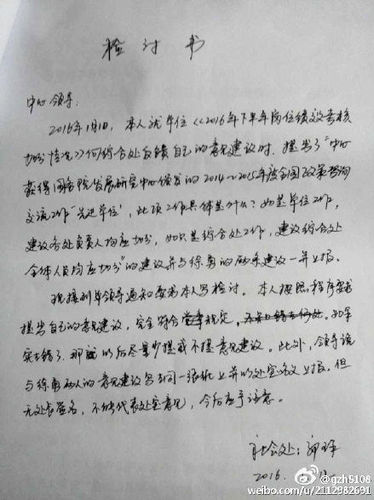 检讨书
中心领导:
2016年1月1日,本人就单位《2016年下半年岗位绩效考核
加分情况》向综合处反馈自己的意见建议时,提出了"中心
获得国务院发展研究中心颁发的2014~2015年度全国政策咨询
交流工作'先进单位',此项工作具体是什么?如是单位工作,
建议各处负责人均应加分,如只是综合处工作,建议综合处
全体人员均应加分"的建议并与徐勇的 建议一并上报。
现接到单位领导通知要求本人写检讨。本人按照程序实事
提出自己的意见建议,完全符合 规定,
实去错了,那 以后尽量少提或不提意见建议。此外,领导说
与徐勇两人的意见建议写在同一张纸上并以处室名义上报,但
无处长签名,不能代表处室意见,今后应予注意。
社会处:
2016.
@gzh5108
weibo.com/u/2112982691